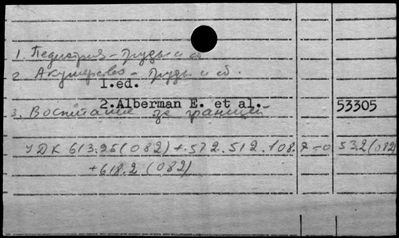 1. Педиатрия - Труды и сб.
2. Акушерство - Труды и сб.
1.ed.
2.Alberman E. et al.
53305
3. Воспитание за границей
УДК 613.95(082)+572.512.108.7=0 53.2(082)
+618.2(082)